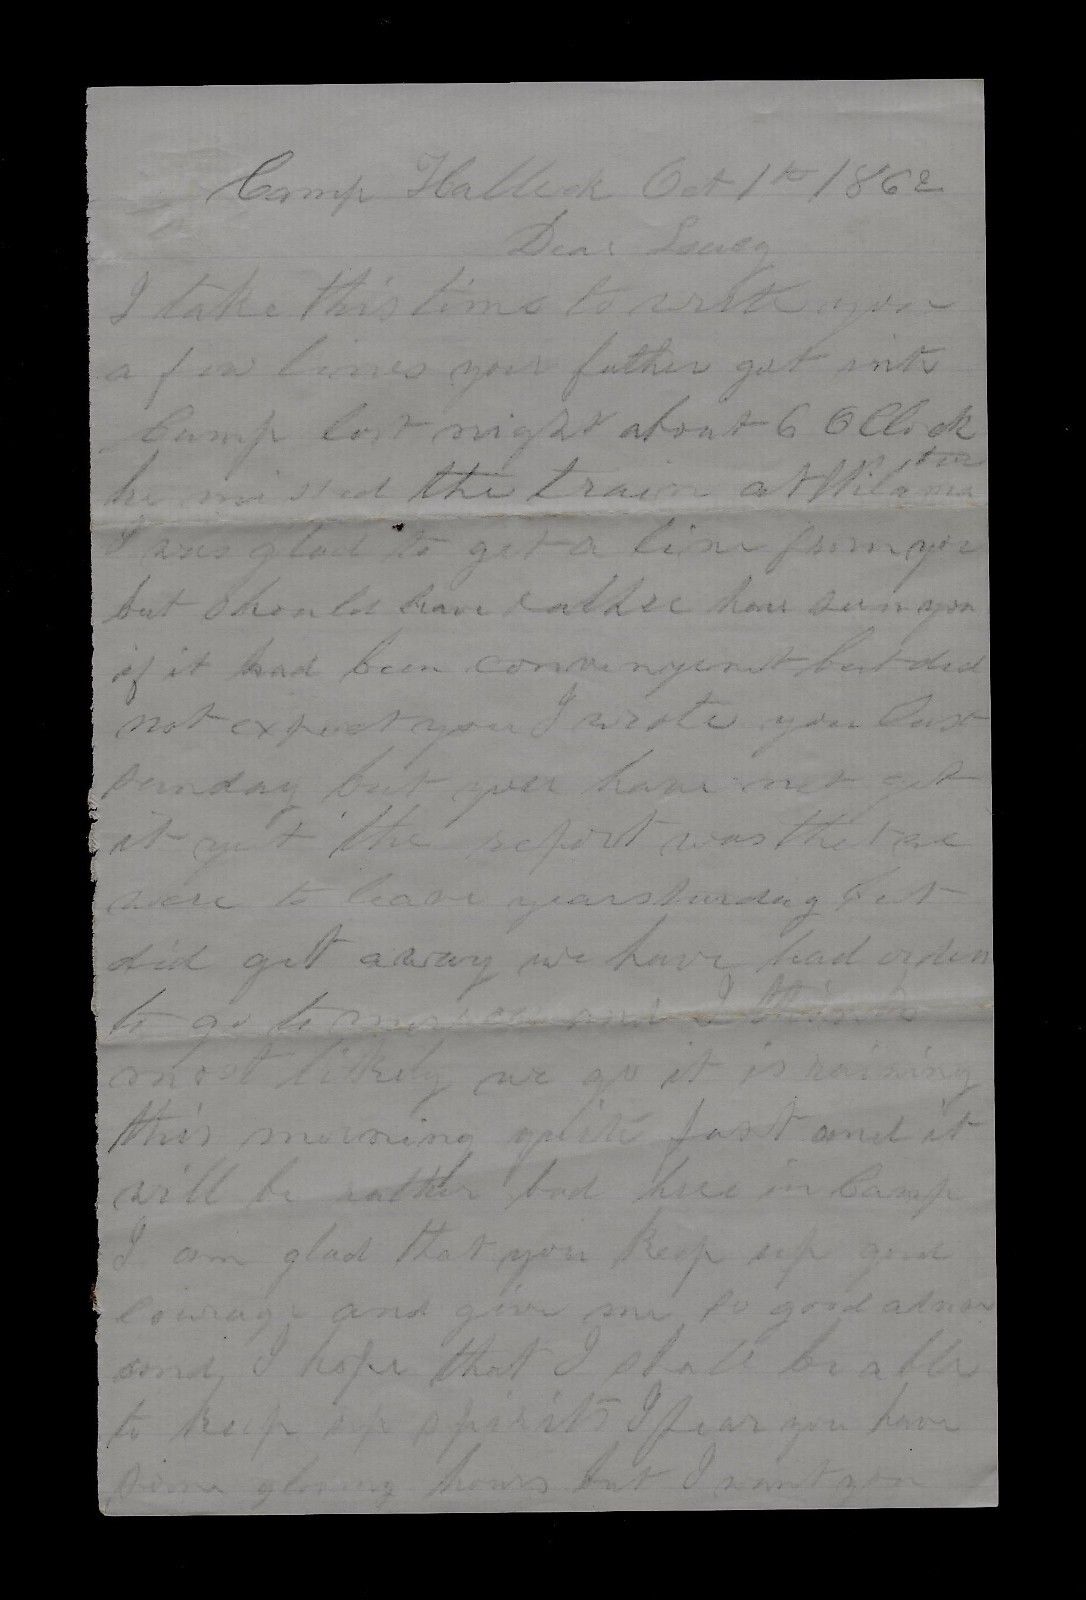 Camp Halleck Oct 1th 1862
Dear Lousy
I take this time to write you
a few lines your father got into
Camp last night about 6 OClock
he missed the train at
I was glad to get a line from you
but should have rather have seen you
if it had been convenyent but did
not expect you I wrote you last
sunday but you have not got
it yet the report was that we
were to leave yearsturday but
did get away we have had orders
to go to and I think
most likely we go it is raining
this morning quite fast and it
will be rather bad here in Camp
I am glad that you keep up good
courage and give me so good advice
and I hope that I shall be able
to keep up spirits I fear you have
some glomy hours but I want you